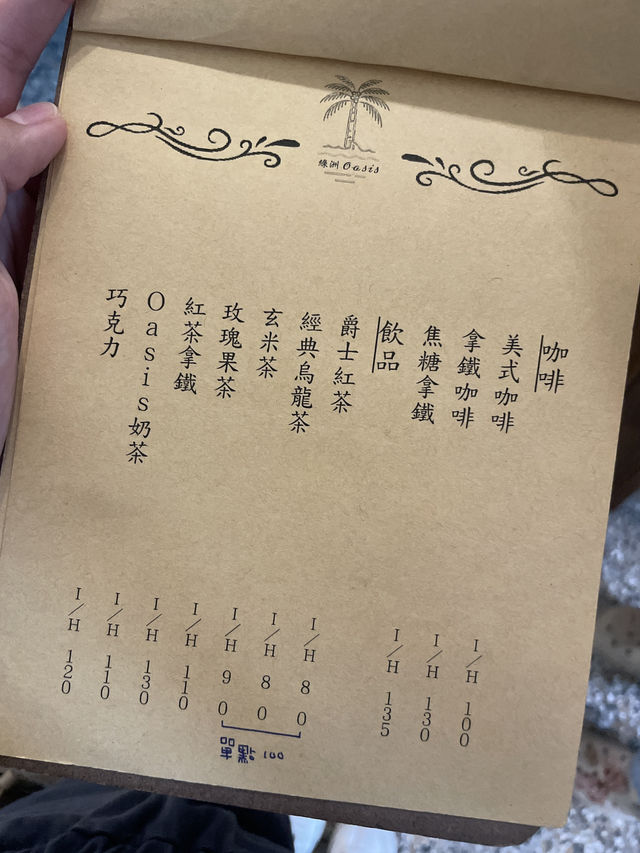 綠洲 Oasis
咖啡
美式咖啡 I/H 100
拿鐵咖啡 I/H 130
焦糖拿鐵 I/H 135
飲品
爵士紅茶 I/H 80
經典烏龍茶 I/H 80
玄米茶 I/H 90
玫瑰果茶 I/H 110
紅茶拿鐵 I/H 130
Oasis奶茶 I/H 110
巧克力 I/H 120
單點 100